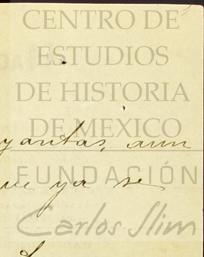 CENTRO DE
ESTUDIOS
DE HISTORIA
DE MEXICO
yantas, aun
ue ya se
FUNDACIÓN
Carlos Slim